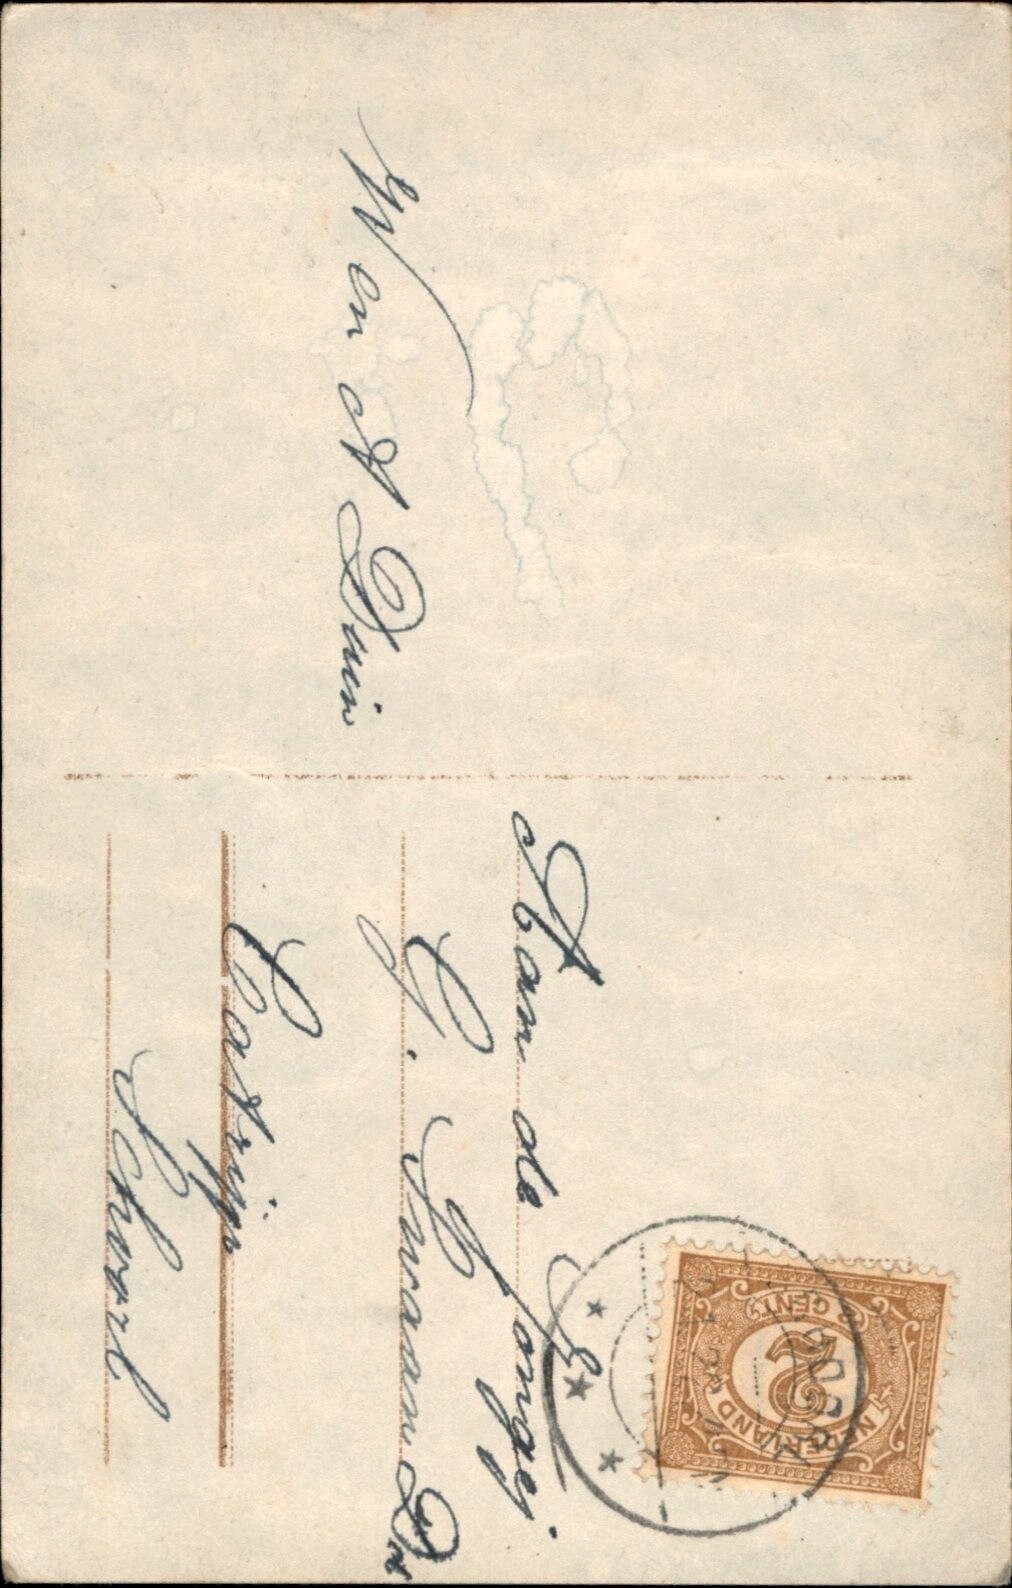 Wen A Duin
Aan de Jongej.
G. Swaan Dr
Catrijp
Schoorl
NEDERLAND
CENT